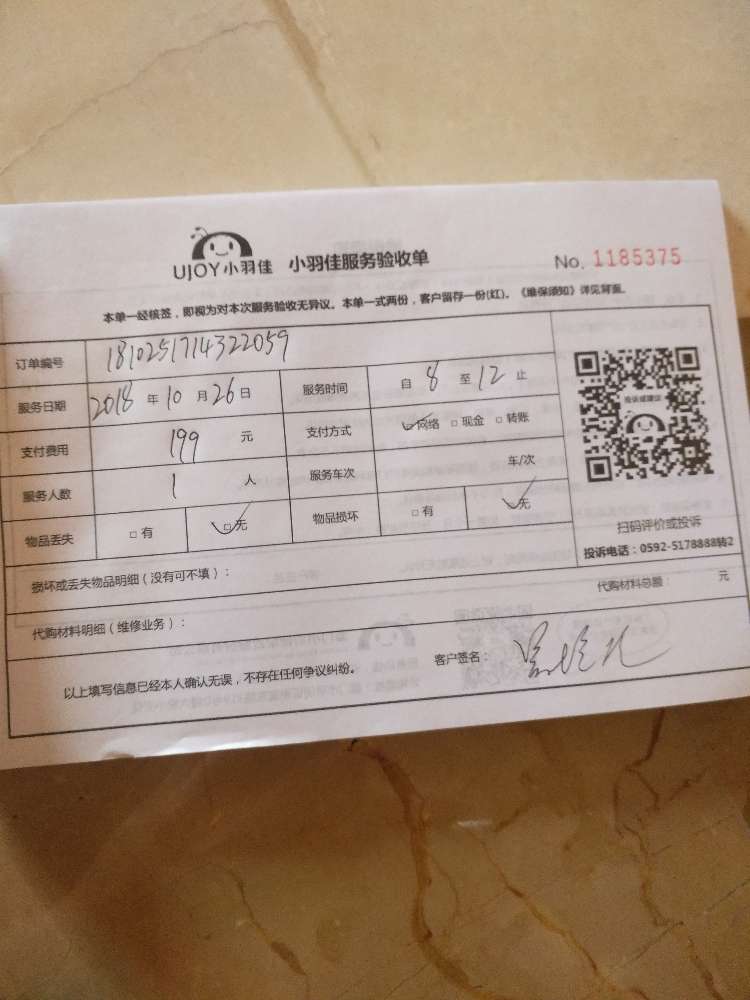 UJOY小羽佳 小羽佳服务验收单 No. 1185375
本单一经核签，即视为对本次服务验收无异议。本单一式两份，客户留存一份(红)。《维保须知》详见背面。
订单编号 1810251714322059
服务日期 2018 年 10 月 26 日 服务时间 自 8 至 12 止
支付费用 199 元 支付方式 ☑网络 □现金 □转账
服务人数 1 人 服务车次 车/次
物品丢失 □有 ☑无 物品损坏 □有 ☑无
投诉或建议
扫码评价或投诉
投诉电话：0592-5178888转2
损坏或丢失物品明细（没有可不填）：
代购材料明细（维修业务）： 代购材料总额： 元
以上填写信息已经本人确认无误，不存在任何争议纠纷。 客户签名：